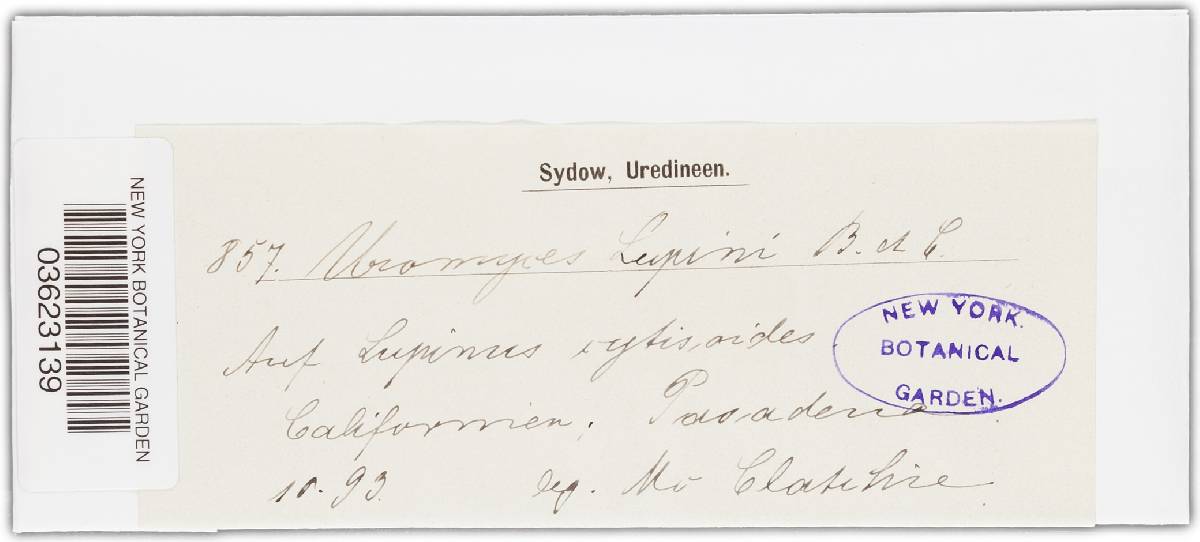 Sydow, Uredineen.
857. Uromyces Lupini B. et C.
Auf Lupinus cytisoides
Californien, Pasadena
10. 93. leg. Mc Clatchie
NEW YORK
BOTANICAL
GARDEN.
NEW YORK BOTANICAL GARDEN
03623139